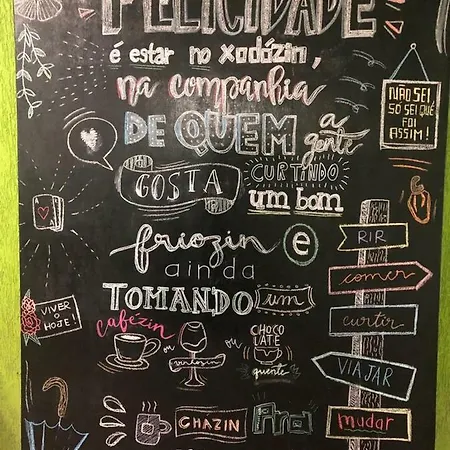 FELICIDADE
é estar no xodózin,
na companhia
DE QUEM a gente
GOSTA CURTINDO
um bom
friozin e
ainda
TOMANDO um
cafézin ou vinhozin ou CHOCOLATE quente
CHAZIN
NÃO SEI,
SÓ SEI QUE
FOI
ASSIM!
VIVER
O
HOJE!
RIR
comer
curtir
VIAJAR
mudar